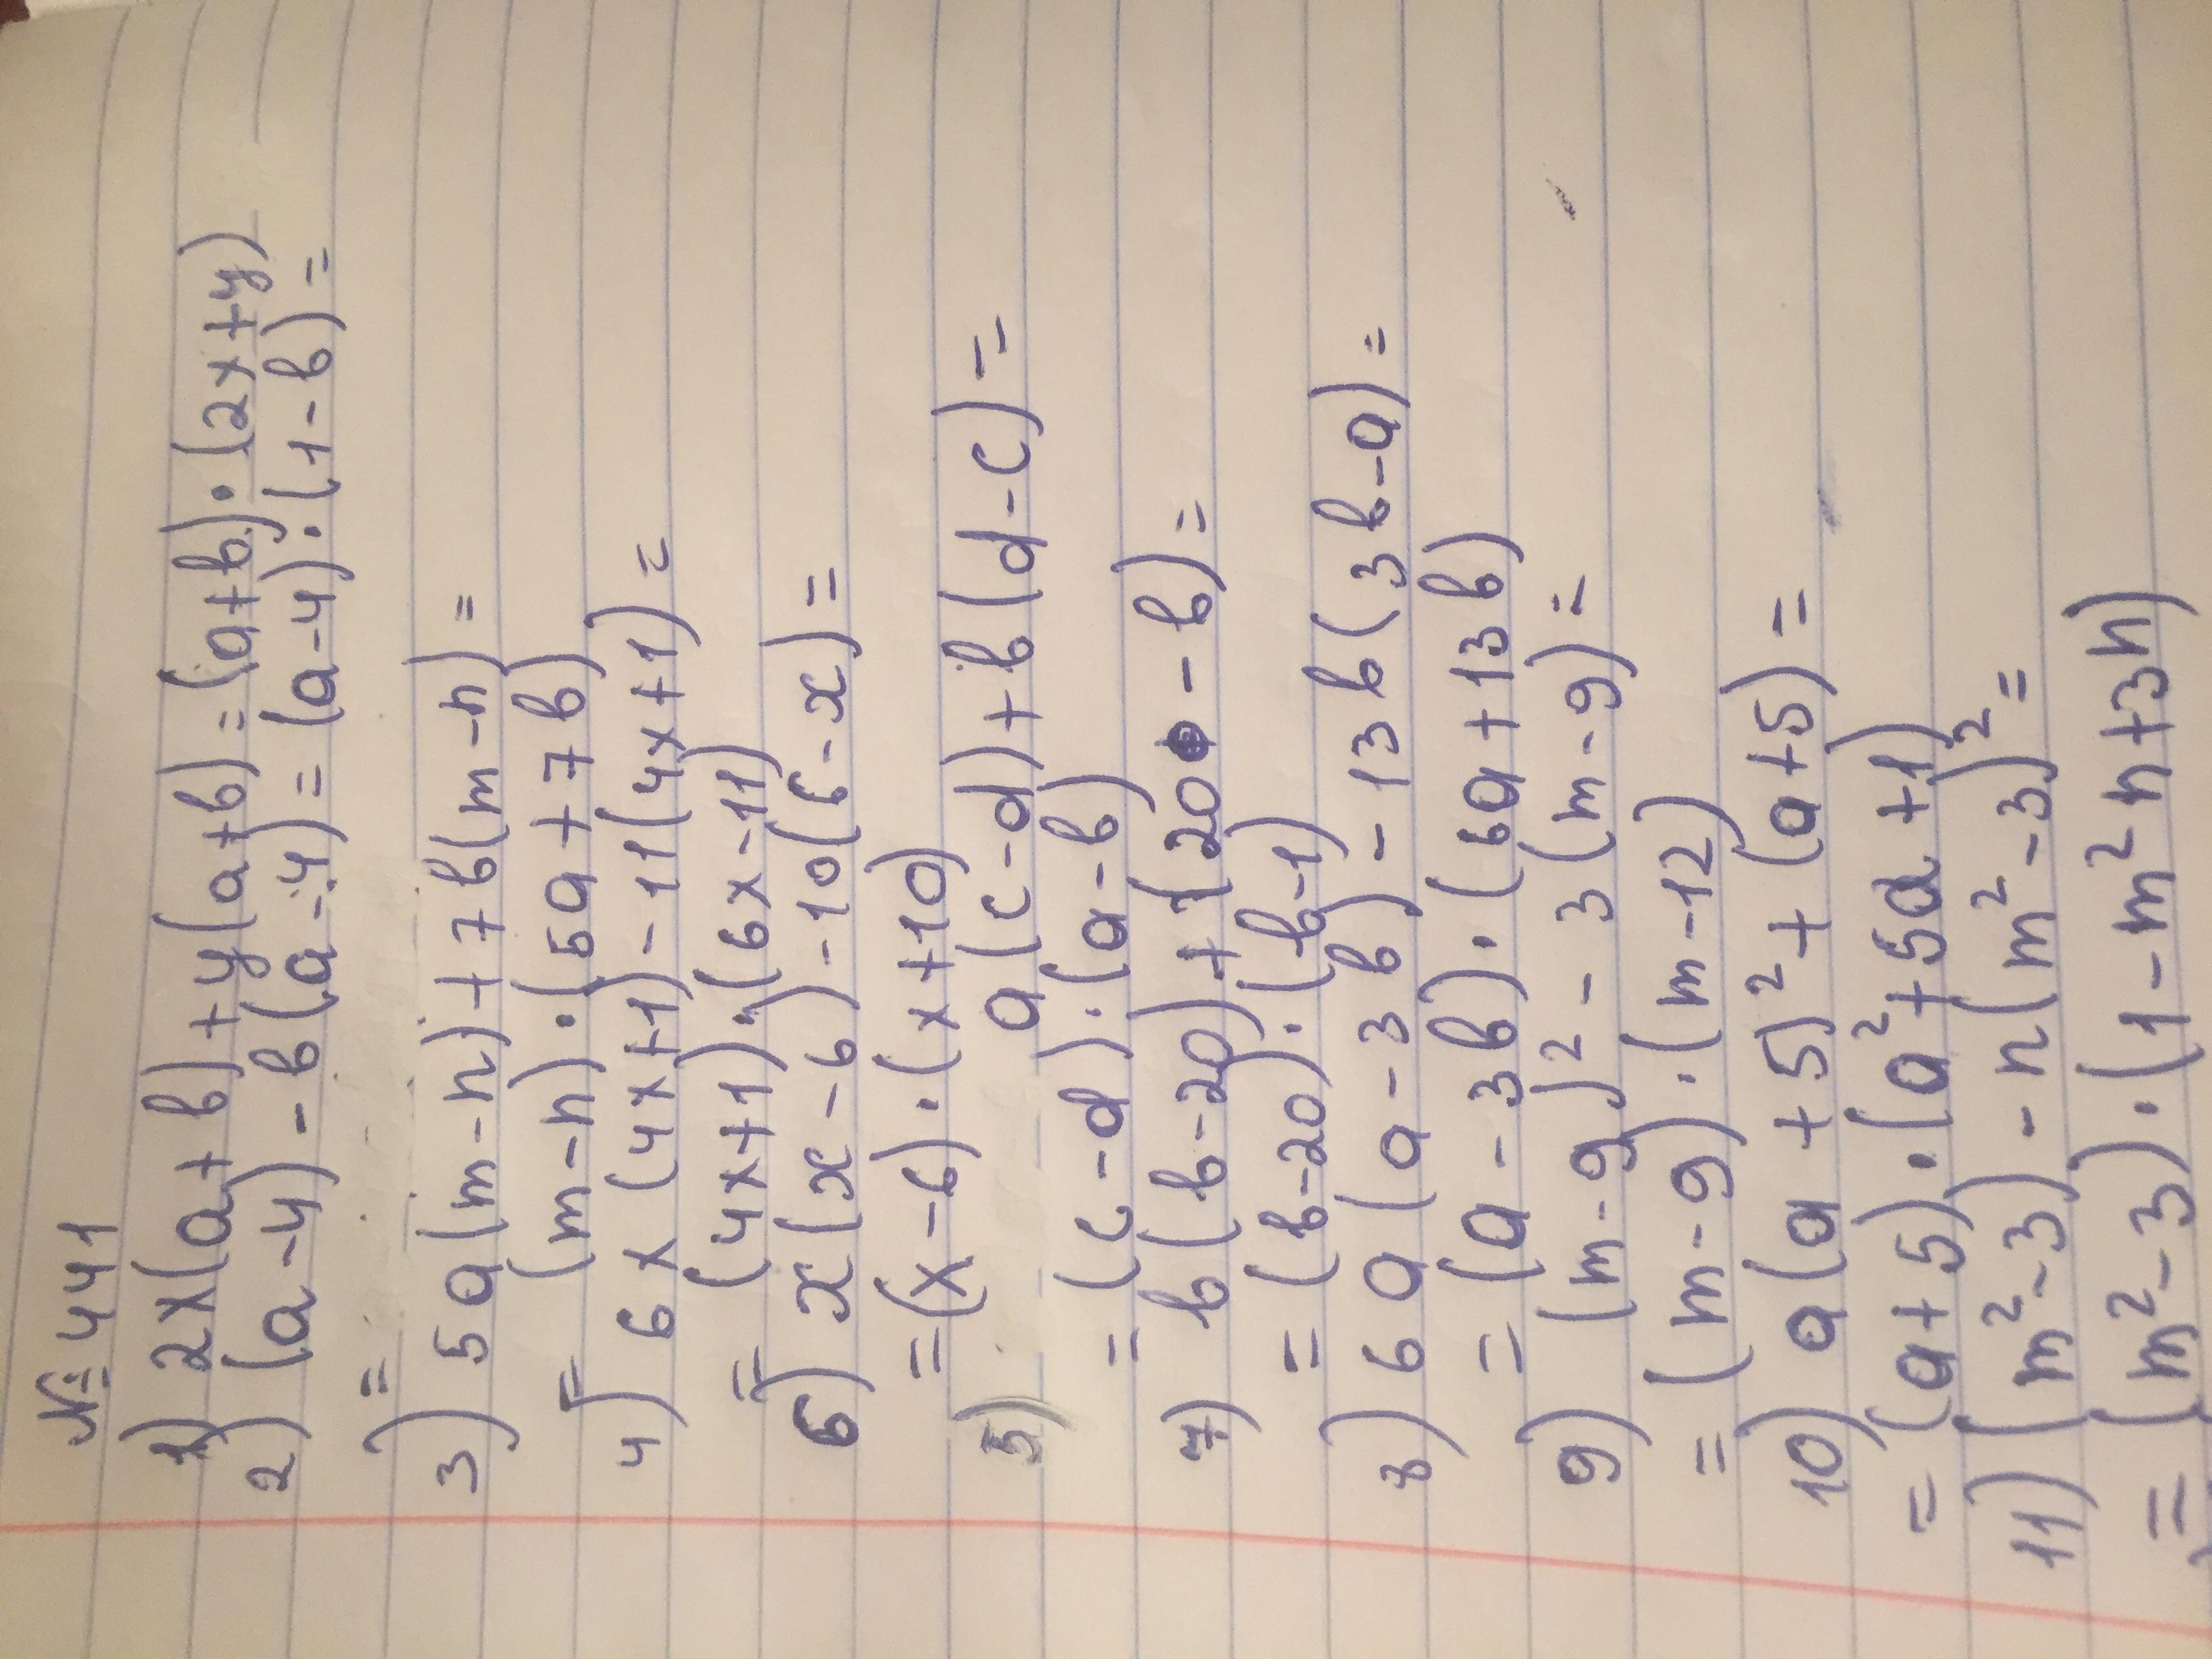 № 441
1) 2x(a+в)+y(a+в)=(a+в)·(2x+y)
2) (a-4)-в(a-4)=(a-4)·(1-в)=
=
3) 5a(m-n)+7в(m-n)=
= (m-n)·(5a+7в)
4) 6x(4x+1)-11(4x+1)=
= (4x+1)·(6x-11)
6) x(x-6)-10(6-x)=
=(x-6)·(x+10)
5) a(c-d)+в(d-c)=
= (c-d)·(a-в)
7) в(в-20)+1(20-в)=
= (в-20)·(в-1)
8) 6a(a-3в)-13в(3в-a)=
= (a-3в)·(6a+13в)
9) (m-9)²-3(m-9)=
= (m-9)·(m-12)
10) a(a+5)²+(a+5)=
= (a+5)·(a²+5a+1)
11) (m²-3)-n(m²-3)²=
= (m²-3)·(1-m²n+3n)